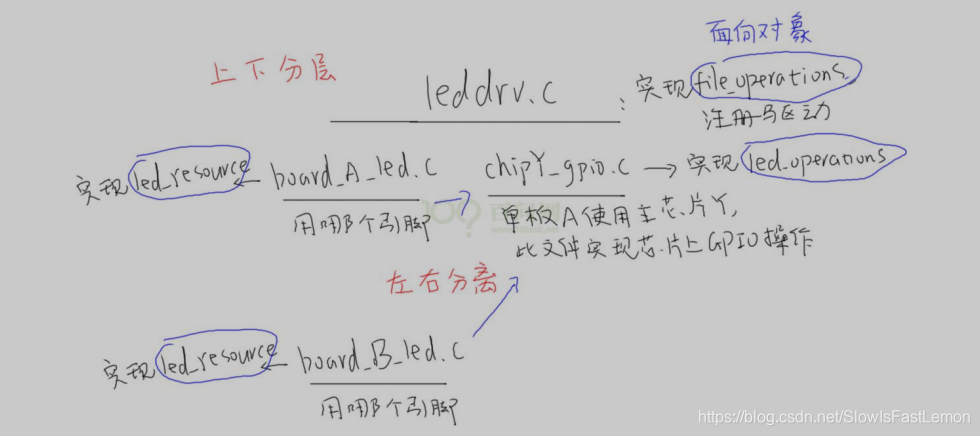 面向对象
上下分层
leddrv.c : 实现file_operations
注册驱动
实现led_resource ← board_A_led.c → chipY_gpio.c → 实现led_operations
用哪个引脚
单板A使用主芯片Y,
此文件实现芯片上GPIO操作
左右分离
实现led_resource ← board_B_led.c
用哪个引脚
https://blog.csdn.net/SlowIsFastLemon